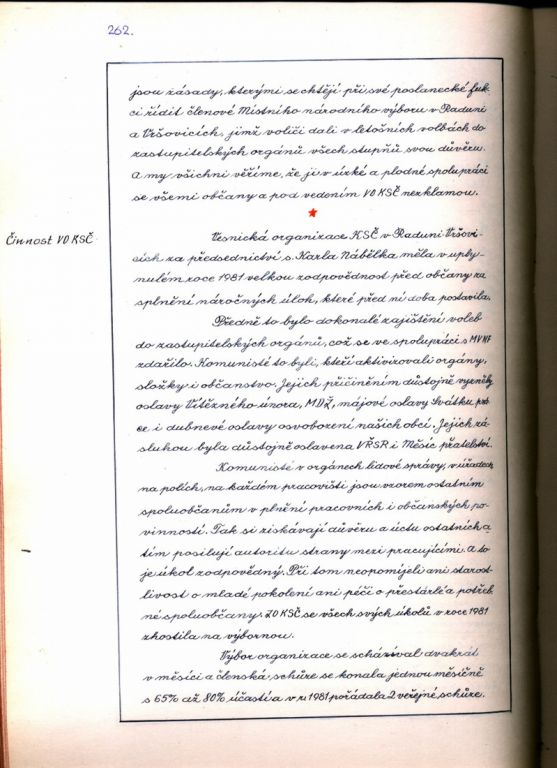 262.
jsou zásady, kterými se chtějí při své poslanecké fuk-
ci řídit členové Místního národního výboru v Raduni
a Vršovicích, jimž voliči dali v letošních volbách do
zastupitelských orgánů všech stupňů svou důvěru.
A my všichni věříme, že ji v úzké a plodné spolupráci
se všemi občany a pod vedením VO KSČ nezklamou.
Činnost VO KSČ
Vesnická organizace KSČ v Raduni Vršovi-
cích za předsednictví s. Karla Nábělka měla v uply-
nulém roce 1981 velkou zodpovědnost před občany za
splnění náročných úloh, které před ní doba postavila.
Předně to bylo dokonalé zajištění voleb
do zastupitelských orgánů, což se ve spolupráci s MV NF
zdařilo. Komunisté to byli, kteří aktivizovali orgány,
složky i občanstvo. Jejich přičiněním důstojně vyzněly
oslavy Vítězného února, MDŽ, májové oslavy Svátku prá-
ce i dubnové oslavy osvobození našich obcí. Jejich zá-
sluhou byla důstojně oslavena VŘSR i Měsíc přátelství.
Komunisté v orgánech lidové správy, v úřadech,
na polích, na každém pracovišti jsou vzorem ostatním
spoluobčanům v plnění pracovních i občanských po-
vinností. Tak si získávají důvěru a úctu ostatních a
tím posilují autoritu strany mezi pracujícími. A to
je úkol zodpovědný. Při tom neopomíjeli ani starost-
livost o mladé pokolení ani péči o přestárlé a potřeb-
né spoluobčany. ZO KSČ se všech svých úkolů v roce 1981
zhostila na výbornou.
Výbor organizace se scházíval dvakrát
v měsíci a členská schůze se konala jednou měsíčně
s 65% až 80% účastí a v r. 1981 pořádala 2 veřejné schůze.